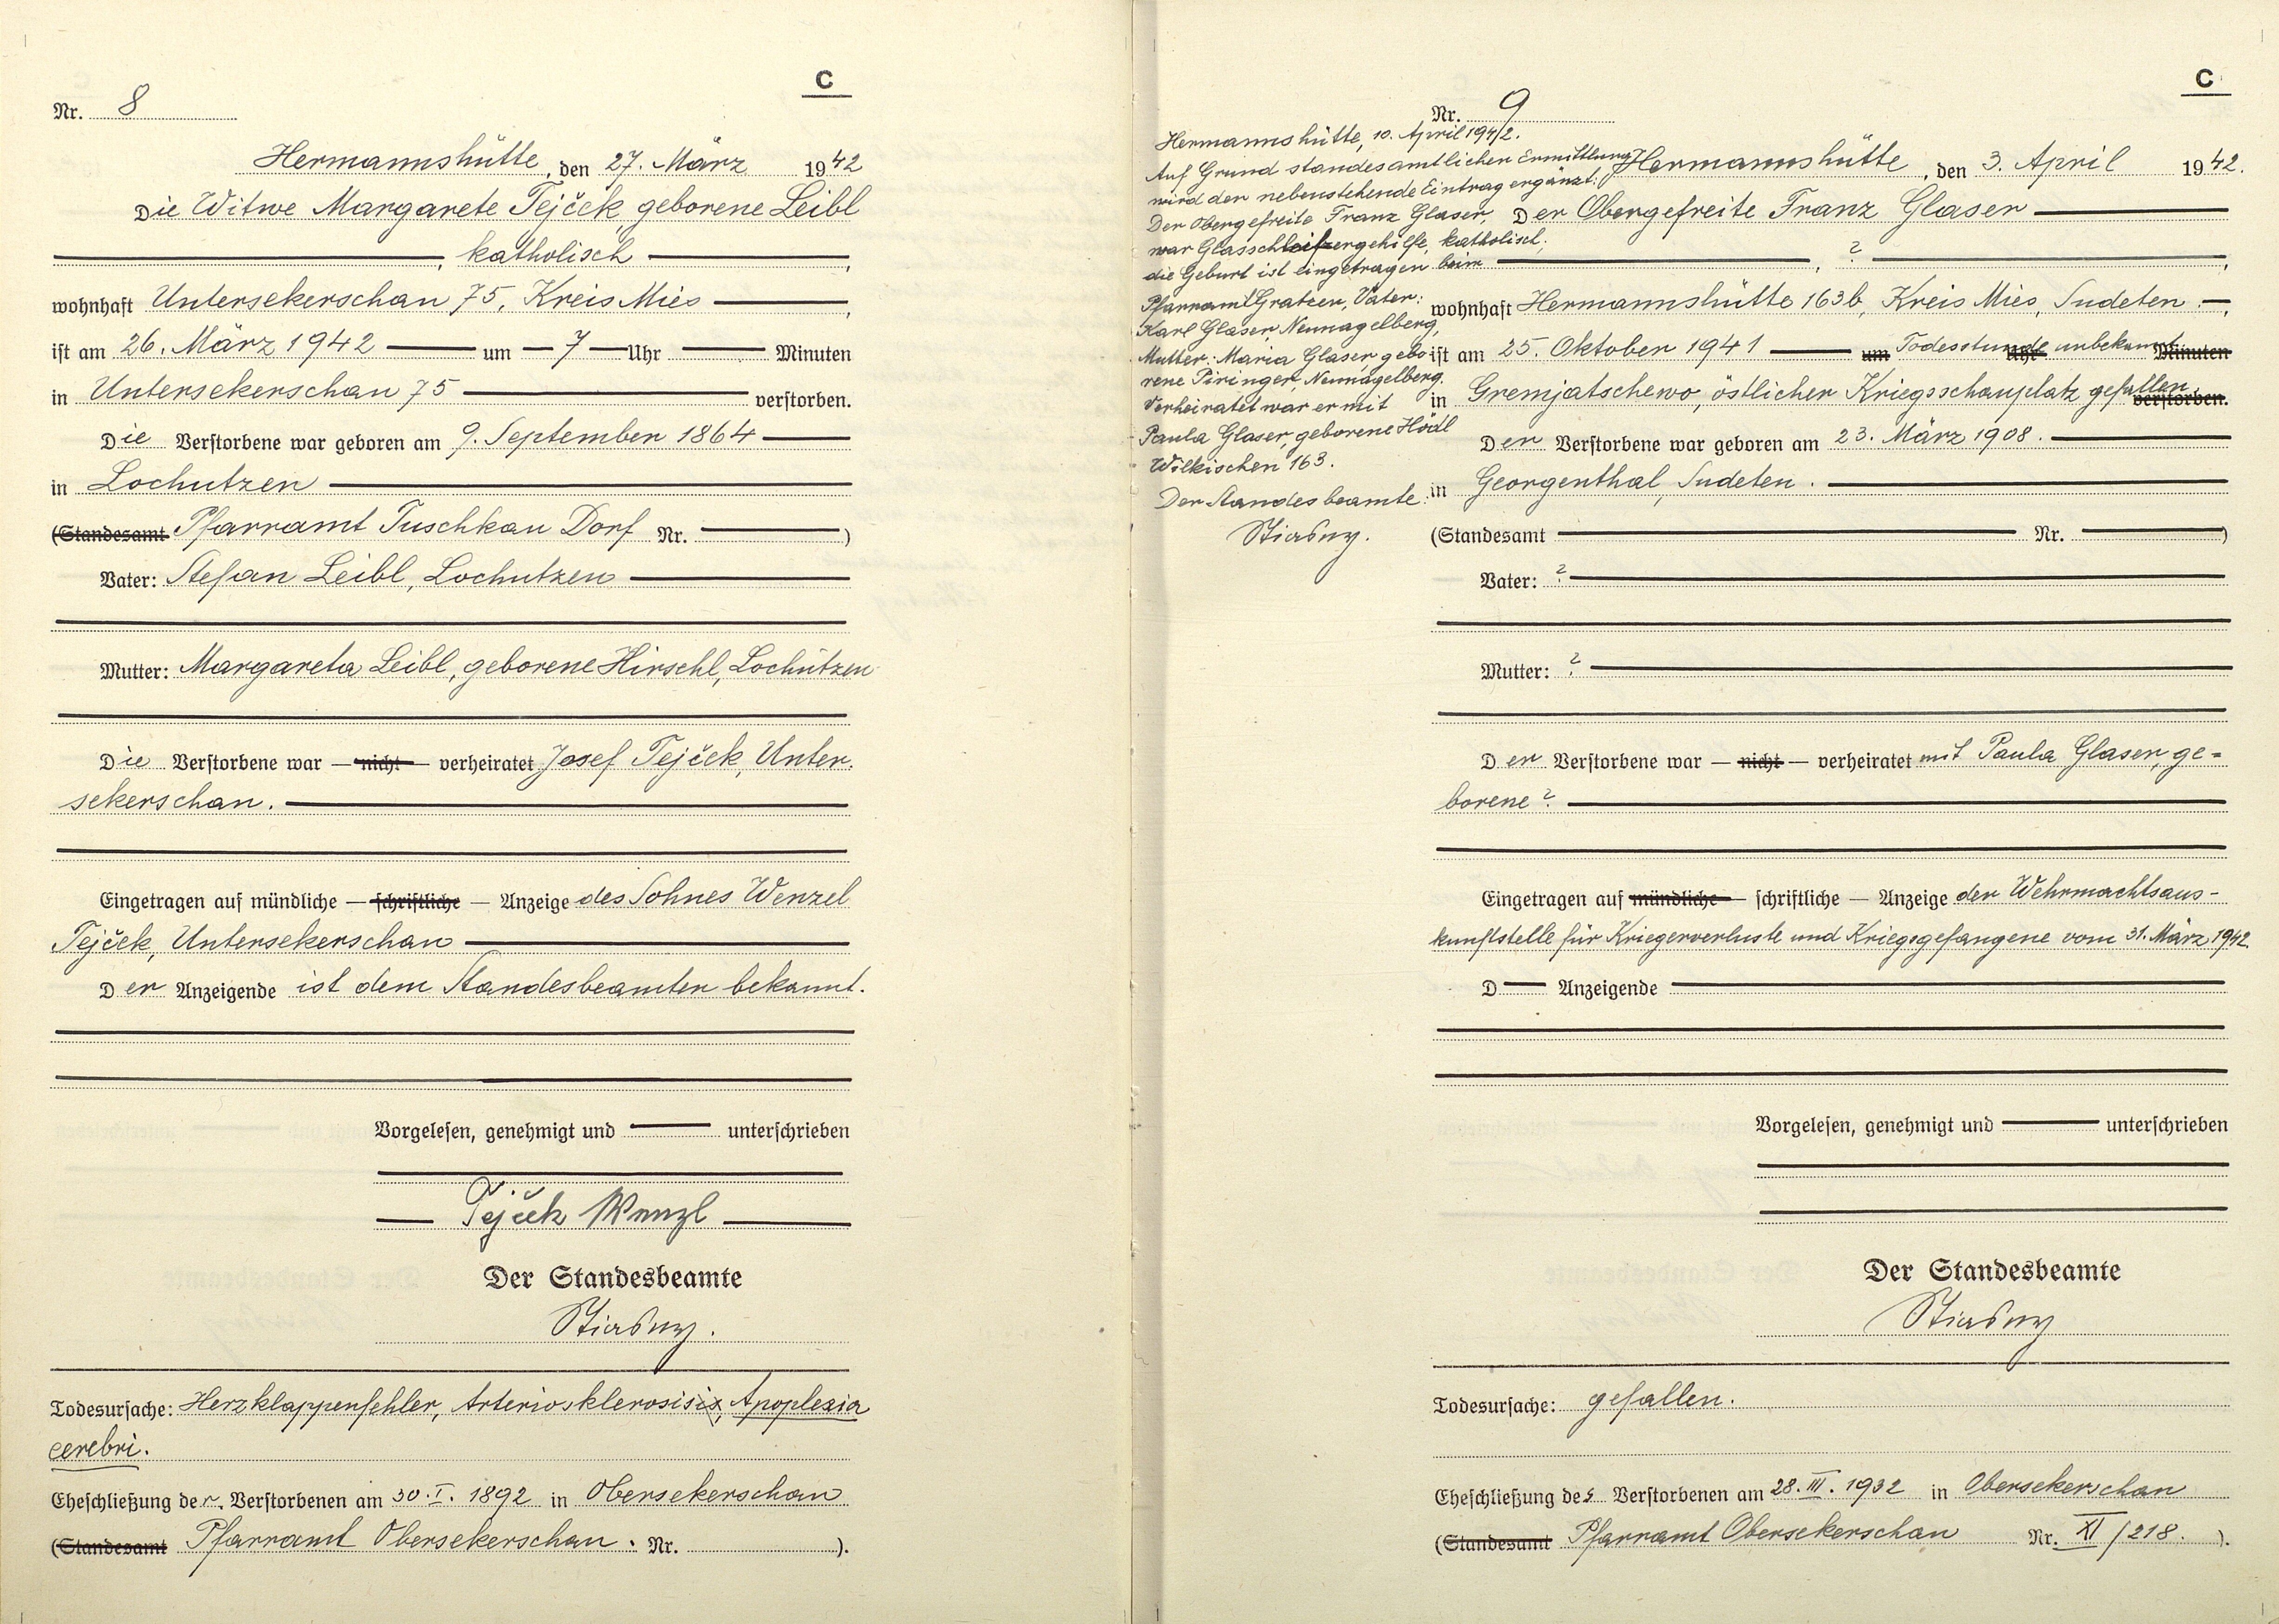 C
Nr. 8
Hermannshütte, den 27. März 1942
Die Witwe Margarete Tejček, geborene Leibl
, katholisch ,
wohnhaft Untersekerschan 75, Kreis Mies ,
ist am 26. März 1942 um 7 Uhr Minuten
in Untersekerschan 75 verstorben.
Die Verstorbene war geboren am 9. September 1864
in Lochutzen
(Standesamt Pfarramt Tuschkau Dorf Nr. )
Vater: Stefan Leibl, Lochutzen
Mutter: Margareta Leibl, geborene Hirschl, Lochutzen
Die Verstorbene war — nicht — verheiratet Josef Tejček, Unter-
sekerschan.
Eingetragen auf mündliche — schriftliche — Anzeige des Sohnes Wenzel
Tejček, Untersekerschan
Der Anzeigende ist dem Standesbeamten bekannt.
Vorgelesen, genehmigt und unterschrieben
Tejček Wenzl
Der Standesbeamte
Stiasny.
Todesursache: Herzklappenfehler, Arteriosklerosis, Apoplexia
cerebri.
Eheschließung der Verstorbenen am 30. I. 1892 in Obersekerschan
(Standesamt Pfarramt Obersekerschan. Nr. ).
C
Nr. 9
Hermannshütte, 10. April 1942.
Auf Grund standesamtlicher Ermittlung
wird der nebenstehende Eintrag ergänzt:
Der Obergefreite Franz Glaser,
war Glasschleifergehilfe, katholisch;
die Geburt ist eingetragen beim
Pfarramt Gratzen, Vater:
Karl Glaser, Neunagelberg,
Mutter: Maria Glaser, gebo-
rene Piringer, Neunagelberg.
Verheiratet war er mit
Paula Glaser, geborene Hödl
Wilkischen 163.
Der Standesbeamte:
Stiasny.
Hermannshütte, den 3. April 1942.
Der Obergefreite Franz Glaser
, ? ,
wohnhaft Hermannshütte 163b, Kreis Mies, Sudeten. ,
ist am 25. Oktober 1941 um Todesstunde Uhr unbekannt Minuten
in Gremjatschewo, östlicher Kriegsschauplatz gefallen. verstorben.
Der Verstorbene war geboren am 23. März 1908.
in Georgenthal, Sudeten.
(Standesamt Nr. )
Vater: ?
Mutter: ?
Der Verstorbene war — nicht — verheiratet mit Paula Glaser, ge-
borene ?
Eingetragen auf mündliche — schriftliche — Anzeige der Wehrmachtsaus-
kunftstelle für Kriegerverluste und Kriegsgefangene vom 31. März 1942.
D Anzeigende
Vorgelesen, genehmigt und unterschrieben
Der Standesbeamte
Stiasny
Todesursache: gefallen.
Eheschließung des Verstorbenen am 28. III. 1932 in Obersekerschan
(Standesamt Pfarramt Obersekerschan Nr. XI/218. ).